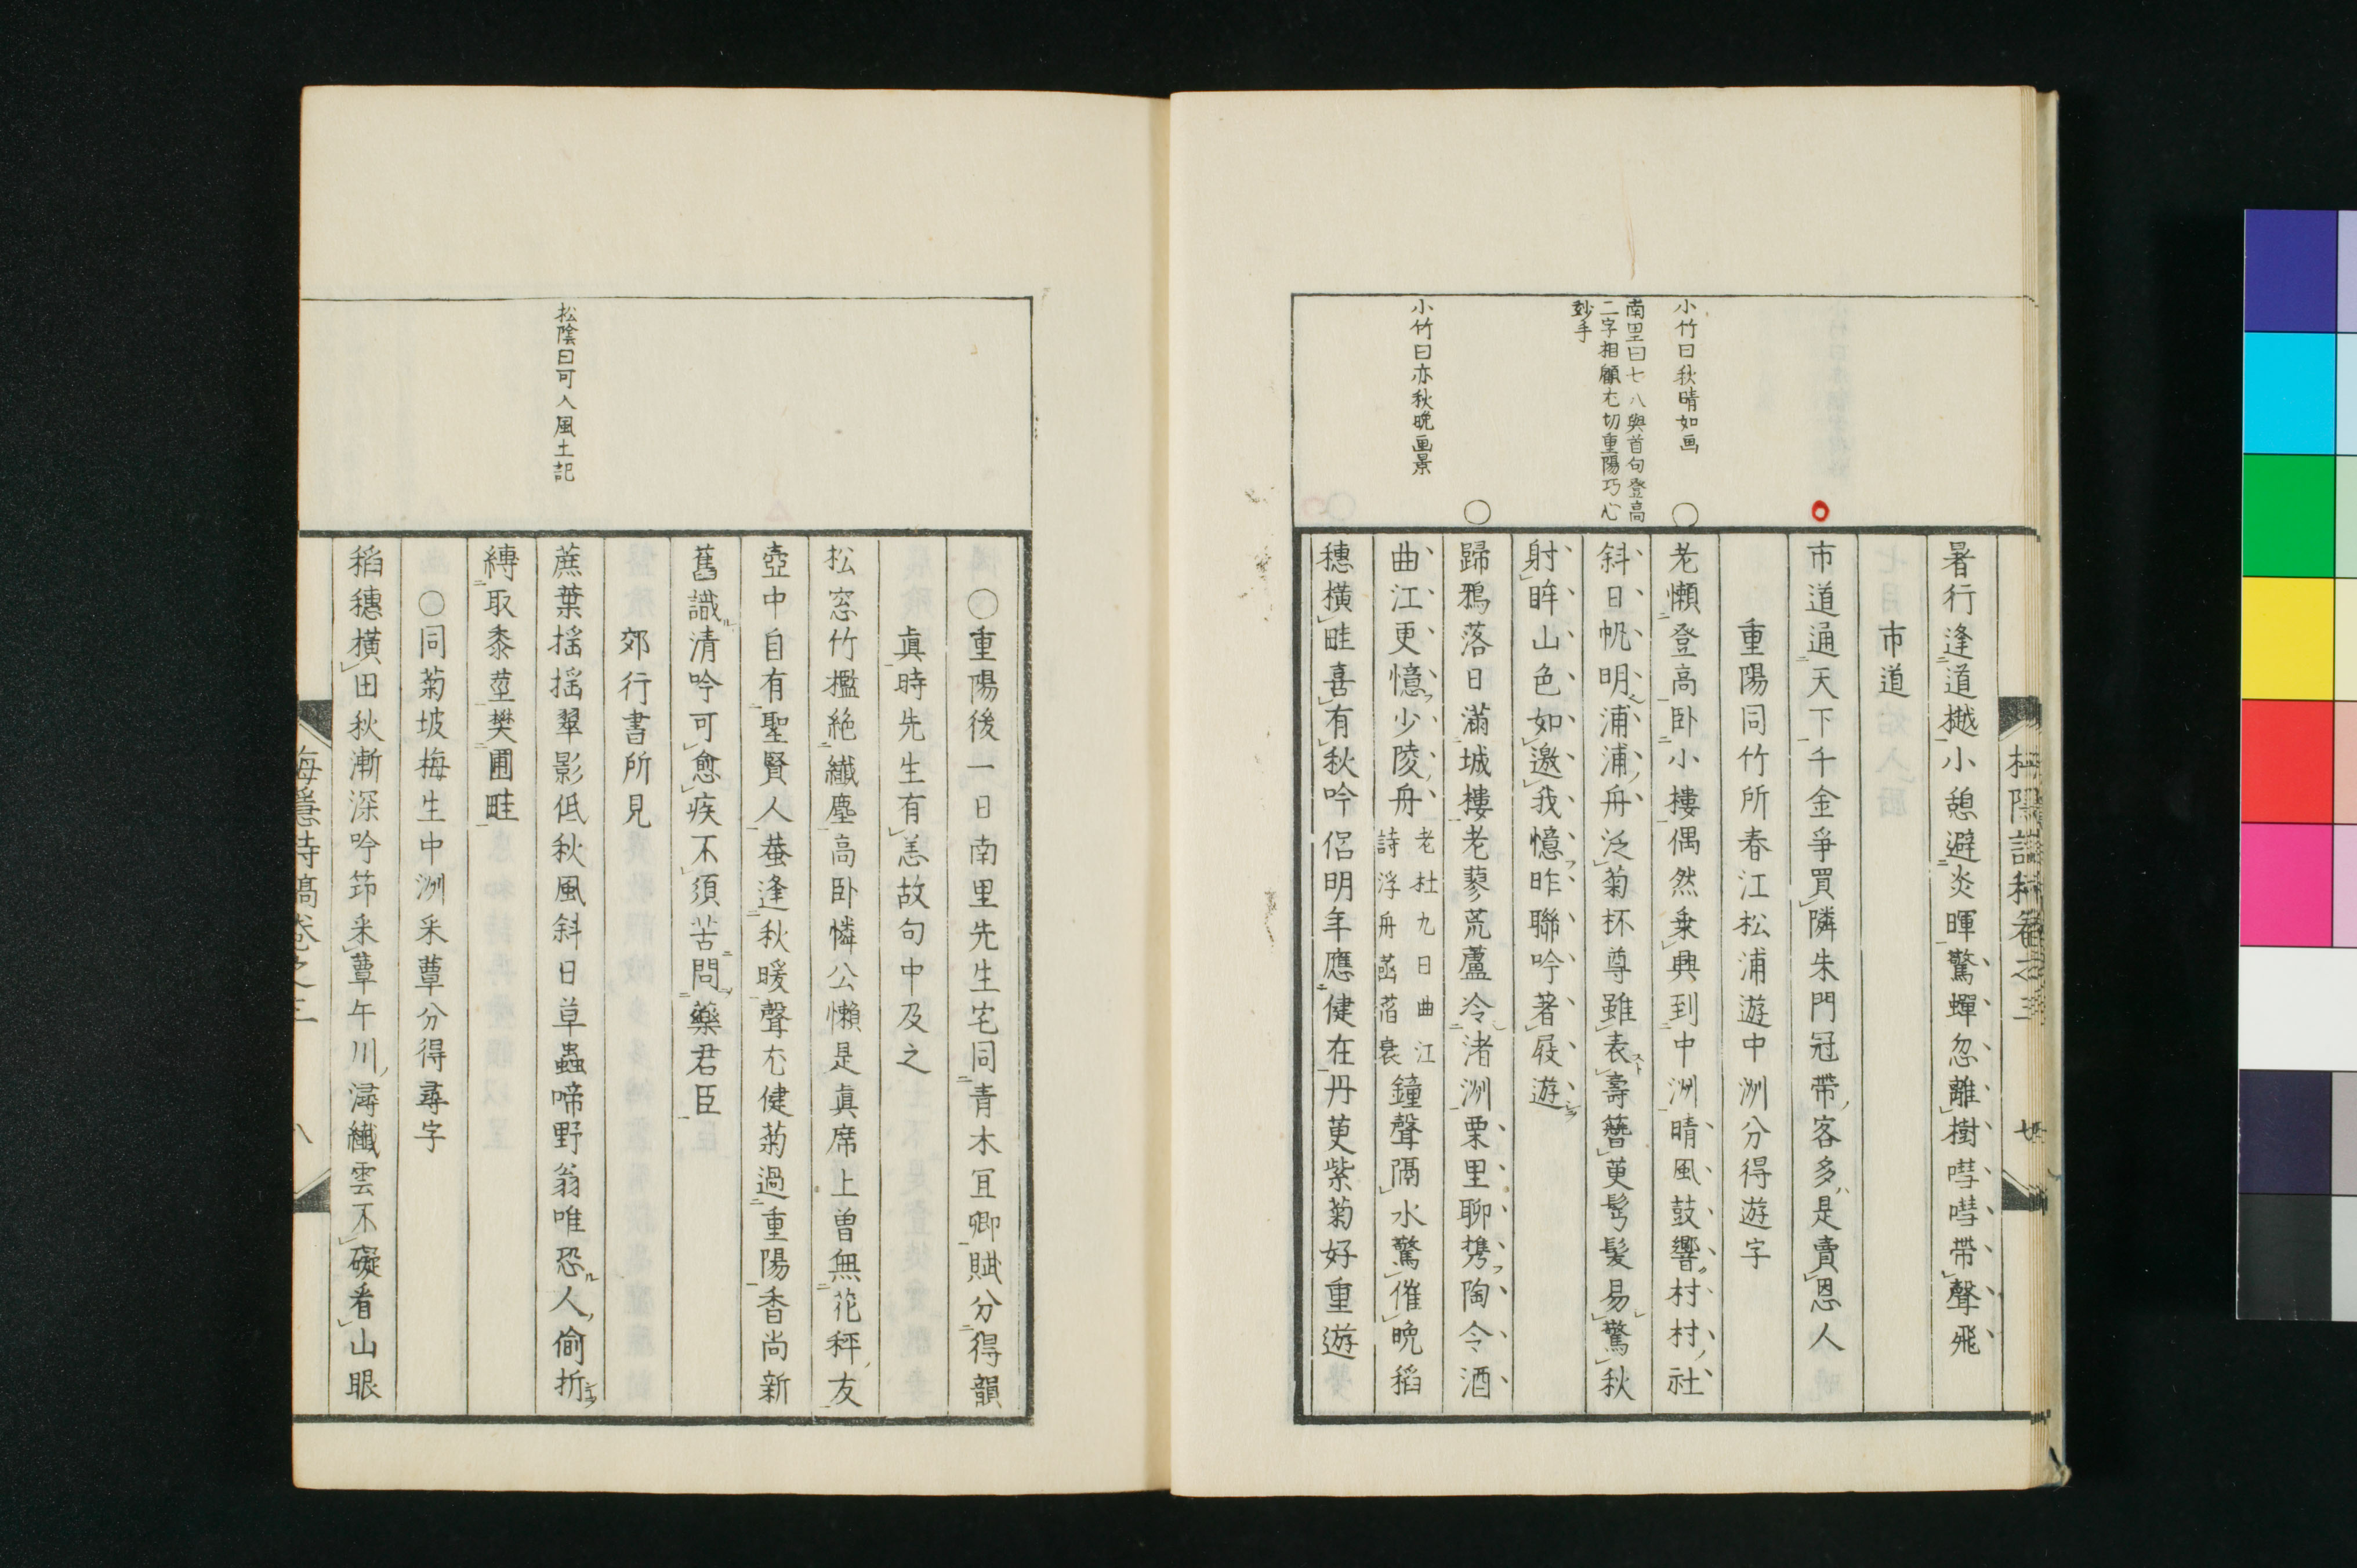 暑行逢道樾小憩避炎暉驚蟬忽離樹嘒嘒帶聲飛
市道
市道通天下千金爭買隣朱門冠帶客多是賣恩人
重陽同竹所春江松浦遊中洲分得遊字
小竹曰秋晴如画
老懶登高卧小樓偶然乗興到中洲晴風鼓響村村社
南里曰七八與首句登高
二字相顧尤切重陽巧心
玅手
斜日帆明浦浦舟泛菊杯尊雖表壽簪萸髩髪易驚秋
射眸山色如邀我憶昨聯吟著屐遊
歸鴉落日滿城樓老蓼荒蘆冷渚洲栗里聊携陶令酒
小竹曰亦秋晩画景
曲江更憶少陵舟老杜九日曲江詩浮舟菡萏衰鐘聲隔水驚催晩稻
穗橫畦喜有秋吟侶明年應健在丹萸紫菊好重遊
〇重陽後一日南里先生宅同青木冝卿賦分得韻
眞時先生有恙故句中及之
松窓竹檻絶纖塵高卧憐公懶是眞席上曽無花秤友
壺中自有聖賢人蛬逢秋暖聲尤健菊過重陽香尚新
舊識清吟可愈疾不須苦問藥君臣
郊行書所見
松陰曰可入風土記
蔗葉揺揺翠影低秋風斜日草蟲啼野翁唯恐人偷折
縳取黍莖樊圃畦
〇同菊坡梅生中洲采蕈分得尋字
稻穗橫田秋漸深吟筇采蕈午川潯纖雲不礙看山眼
梅隱詩稿卷之三
八